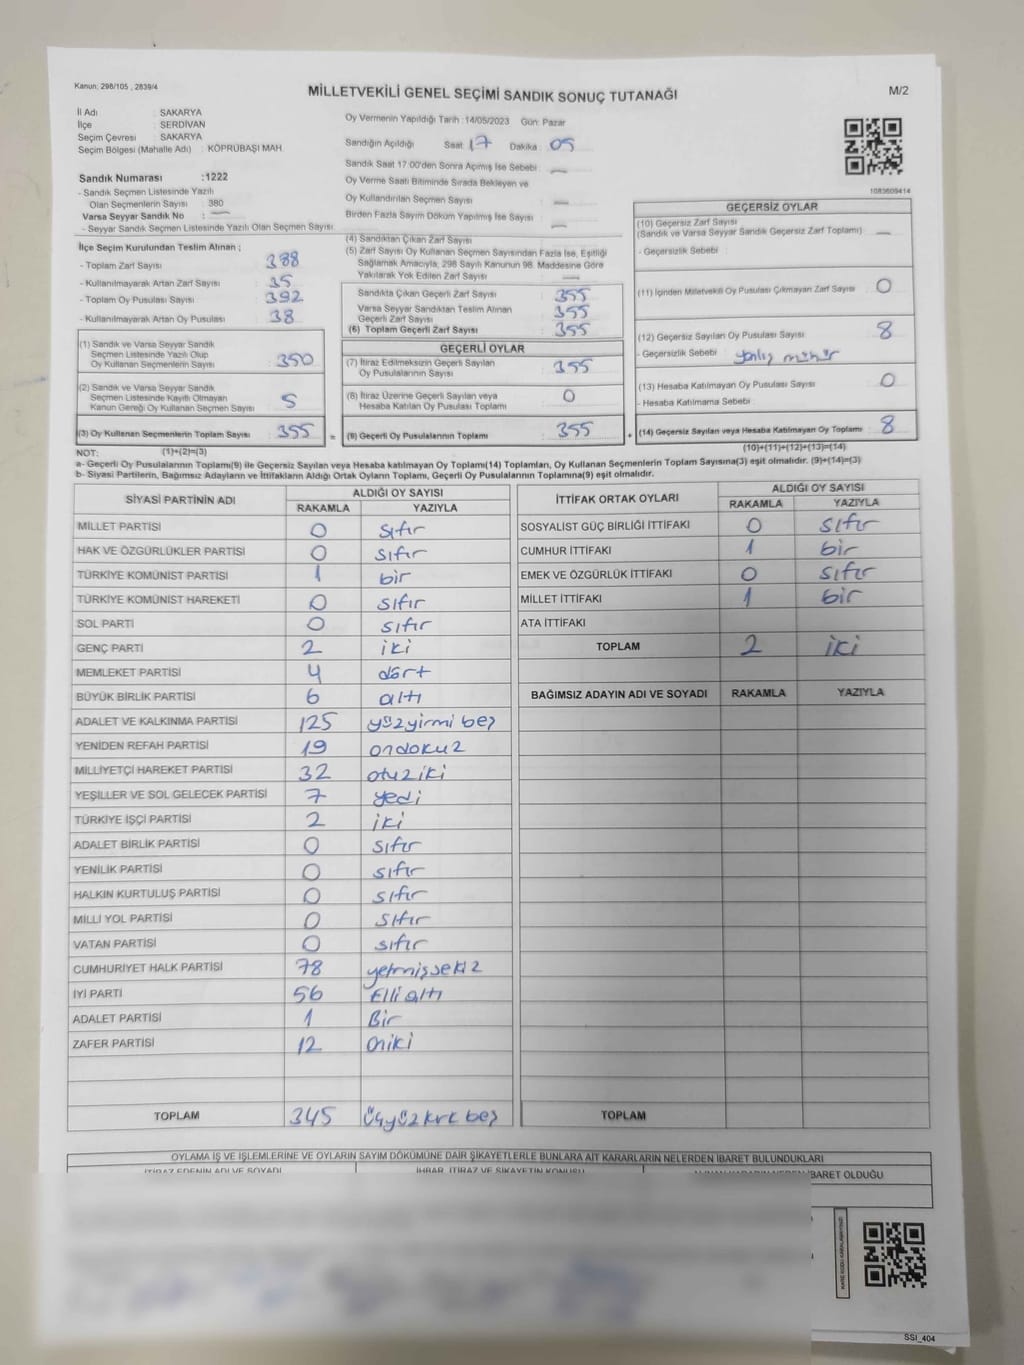 Kanun: 298/105 , 2839/4
MİLLETVEKİLİ GENEL SEÇİMİ SANDIK SONUÇ TUTANAĞI
M/2
İl Adı : SAKARYA
İlçe : SERDİVAN
Seçim Çevresi : SAKARYA
Seçim Bölgesi (Mahalle Adı) : KÖPRÜBAŞI MAH
Sandık Numarası :1222
- Sandık Seçmen Listesinde Yazılı
Olan Seçmenlerin Sayısı : 380
Varsa Seyyar Sandık No : —
- Seyyar Sandık Seçmen Listesinde Yazılı Olan Seçmen Sayısı :
İlçe Seçim Kurulundan Teslim Alınan ;
- Toplam Zarf Sayısı 388
- Kullanılmayarak Artan Zarf Sayısı 35
- Toplam Oy Pusulası Sayısı 392
- Kullanılmayarak Artan Oy Pusulası 38
(1) Sandık ve Varsa Seyyar Sandık
Seçmen Listesinde Yazılı Olup
Oy Kullanan Seçmenlerin Sayısı 350
(2) Sandık ve Varsa Seyyar Sandık
Seçmen Listesinde Kayıtlı Olmayan
Kanun Gereği Oy Kullanan Seçmen Sayısı 5
(3) Oy Kullanan Seçmenlerin Toplam Sayısı 355 =
Oy Vermenin Yapıldığı Tarih :14/05/2023 Gün: Pazar
Sandığın Açıldığı Saat 17 Dakika 05
Sandık Saat 17:00'den Sonra Açımış İse Sebebi : —
Oy Verme Saati Bitiminde Sırada Bekleyen ve
Oy Kullandırılan Seçmen Sayısı : —
Birden Fazla Sayım Döküm Yapılmış İse Sayısı : —
(4) Sandıktan Çıkan Zarf Sayısı —
(5) Zarf Sayısı Oy Kullanan Seçmen Sayısından Fazla İse, Eşitliği
Sağlamak Amacıyla, 298 Sayılı Kanunun 98. Maddesine Göre
Yakılarak Yok Edilen Zarf Sayısı : —
Sandıkta Çıkan Geçerli Zarf Sayısı 355
Varsa Seyyar Sandıktan Teslim Alınan
Geçerli Zarf Sayısı 355
(6) Toplam Geçerli Zarf Sayısı 355
GEÇERLİ OYLAR
(7) İtiraz Edilmeksizin Geçerli Sayılan
Oy Pusulalarının Sayısı 355
(8) İtiraz Üzerine Geçerli Sayılan veya
Hesaba Katılan Oy Pusulası Toplamı 0
(9) Geçerli Oy Pusulalarının Toplamı 355 +
1083609414
GEÇERSİZ OYLAR
(10) Geçersiz Zarf Sayısı
(Sandık ve Varsa Seyyar Sandık Geçersiz Zarf Toplamı) —
- Geçersizlik Sebebi :
(11) İçinden Milletvekili Oy Pusulası Çıkmayan Zarf Sayısı 0
(12) Geçersiz Sayılan Oy Pusulası Sayısı 8
- Geçersizlik Sebebi : yanlış mühür
(13) Hesaba Katılmayan Oy Pusulası Sayısı 0
- Hesaba Katılmama Sebebi
(14) Geçersiz Sayılan veya Hesaba Katılmayan Oy Toplamı 8
NOT: (1)+(2)=(3) (10)+(11)+(12)+(13)=(14)
a- Geçerli Oy Pusulalarının Toplamı(9) ile Geçersiz Sayılan veya Hesaba katılmayan Oy Toplamı(14) Toplamları, Oy Kullanan Seçmenlerin Toplam Sayısına(3) eşit olmalıdır. (9)+(14)=(3)
b- Siyasi Partilerin, Bağımsız Adayların ve İttifakların Aldığı Oyların Toplamı, Geçerli Oy Pusulalarının Toplamına(9) eşit olmalıdır.
SİYASİ PARTİNİN ADI ALDIĞI OY SAYISI
RAKAMLA YAZIYLA
MİLLET PARTİSİ 0 sıfır
HAK VE ÖZGÜRLÜKLER PARTİSİ 0 sıfır
TÜRKİYE KOMÜNİST PARTİSİ 1 bir
TÜRKİYE KOMÜNİST HAREKETİ 0 sıfır
SOL PARTİ 0 sıfır
GENÇ PARTİ 2 iki
MEMLEKET PARTİSİ 4 dört
BÜYÜK BİRLİK PARTİSİ 6 altı
ADALET VE KALKINMA PARTİSİ 125 yüzyirmi beş
YENİDEN REFAH PARTİSİ 19 ondokuz
MİLLİYETÇİ HAREKET PARTİSİ 32 otuziki
YEŞİLLER VE SOL GELECEK PARTİSİ 7 yedi
TÜRKİYE İŞÇİ PARTİSİ 2 iki
ADALET BİRLİK PARTİSİ 0 sıfır
YENİLİK PARTİSİ 0 sıfır
HALKIN KURTULUŞ PARTİSİ 0 sıfır
MİLLİ YOL PARTİSİ 0 sıfır
VATAN PARTİSİ 0 sıfır
CUMHURİYET HALK PARTİSİ 78 yetmişsekiz
İYİ PARTİ 56 Elli altı
ADALET PARTİSİ 1 Bir
ZAFER PARTİSİ 12 Oniki
TOPLAM 345 üçyüzkırk beş
İTTİFAK ORTAK OYLARI ALDIĞI OY SAYISI
RAKAMLA YAZIYLA
SOSYALİST GÜÇ BİRLİĞİ İTTİFAKI 0 sıfır
CUMHUR İTTİFAKI 1 bir
EMEK VE ÖZGÜRLÜK İTTİFAKI 0 sıfır
MİLLET İTTİFAKI 1 bir
ATA İTTİFAKI
TOPLAM 2 iki
BAĞIMSIZ ADAYIN ADI VE SOYADI RAKAMLA YAZIYLA
TOPLAM
OYLAMA İŞ VE İŞLEMLERİNE VE OYLARIN SAYIM DÖKÜMÜNE DAİR ŞİKAYETLERLE BUNLARA AİT KARARLARIN NELERDEN İBARET BULUNDUKLARI
İTİRAZ EDENİN ADI VE SOYADI İHBAR, İTİRAZ VE ŞİKAYETİN KONUSU İBARET OLDUĞU
SSİ_404